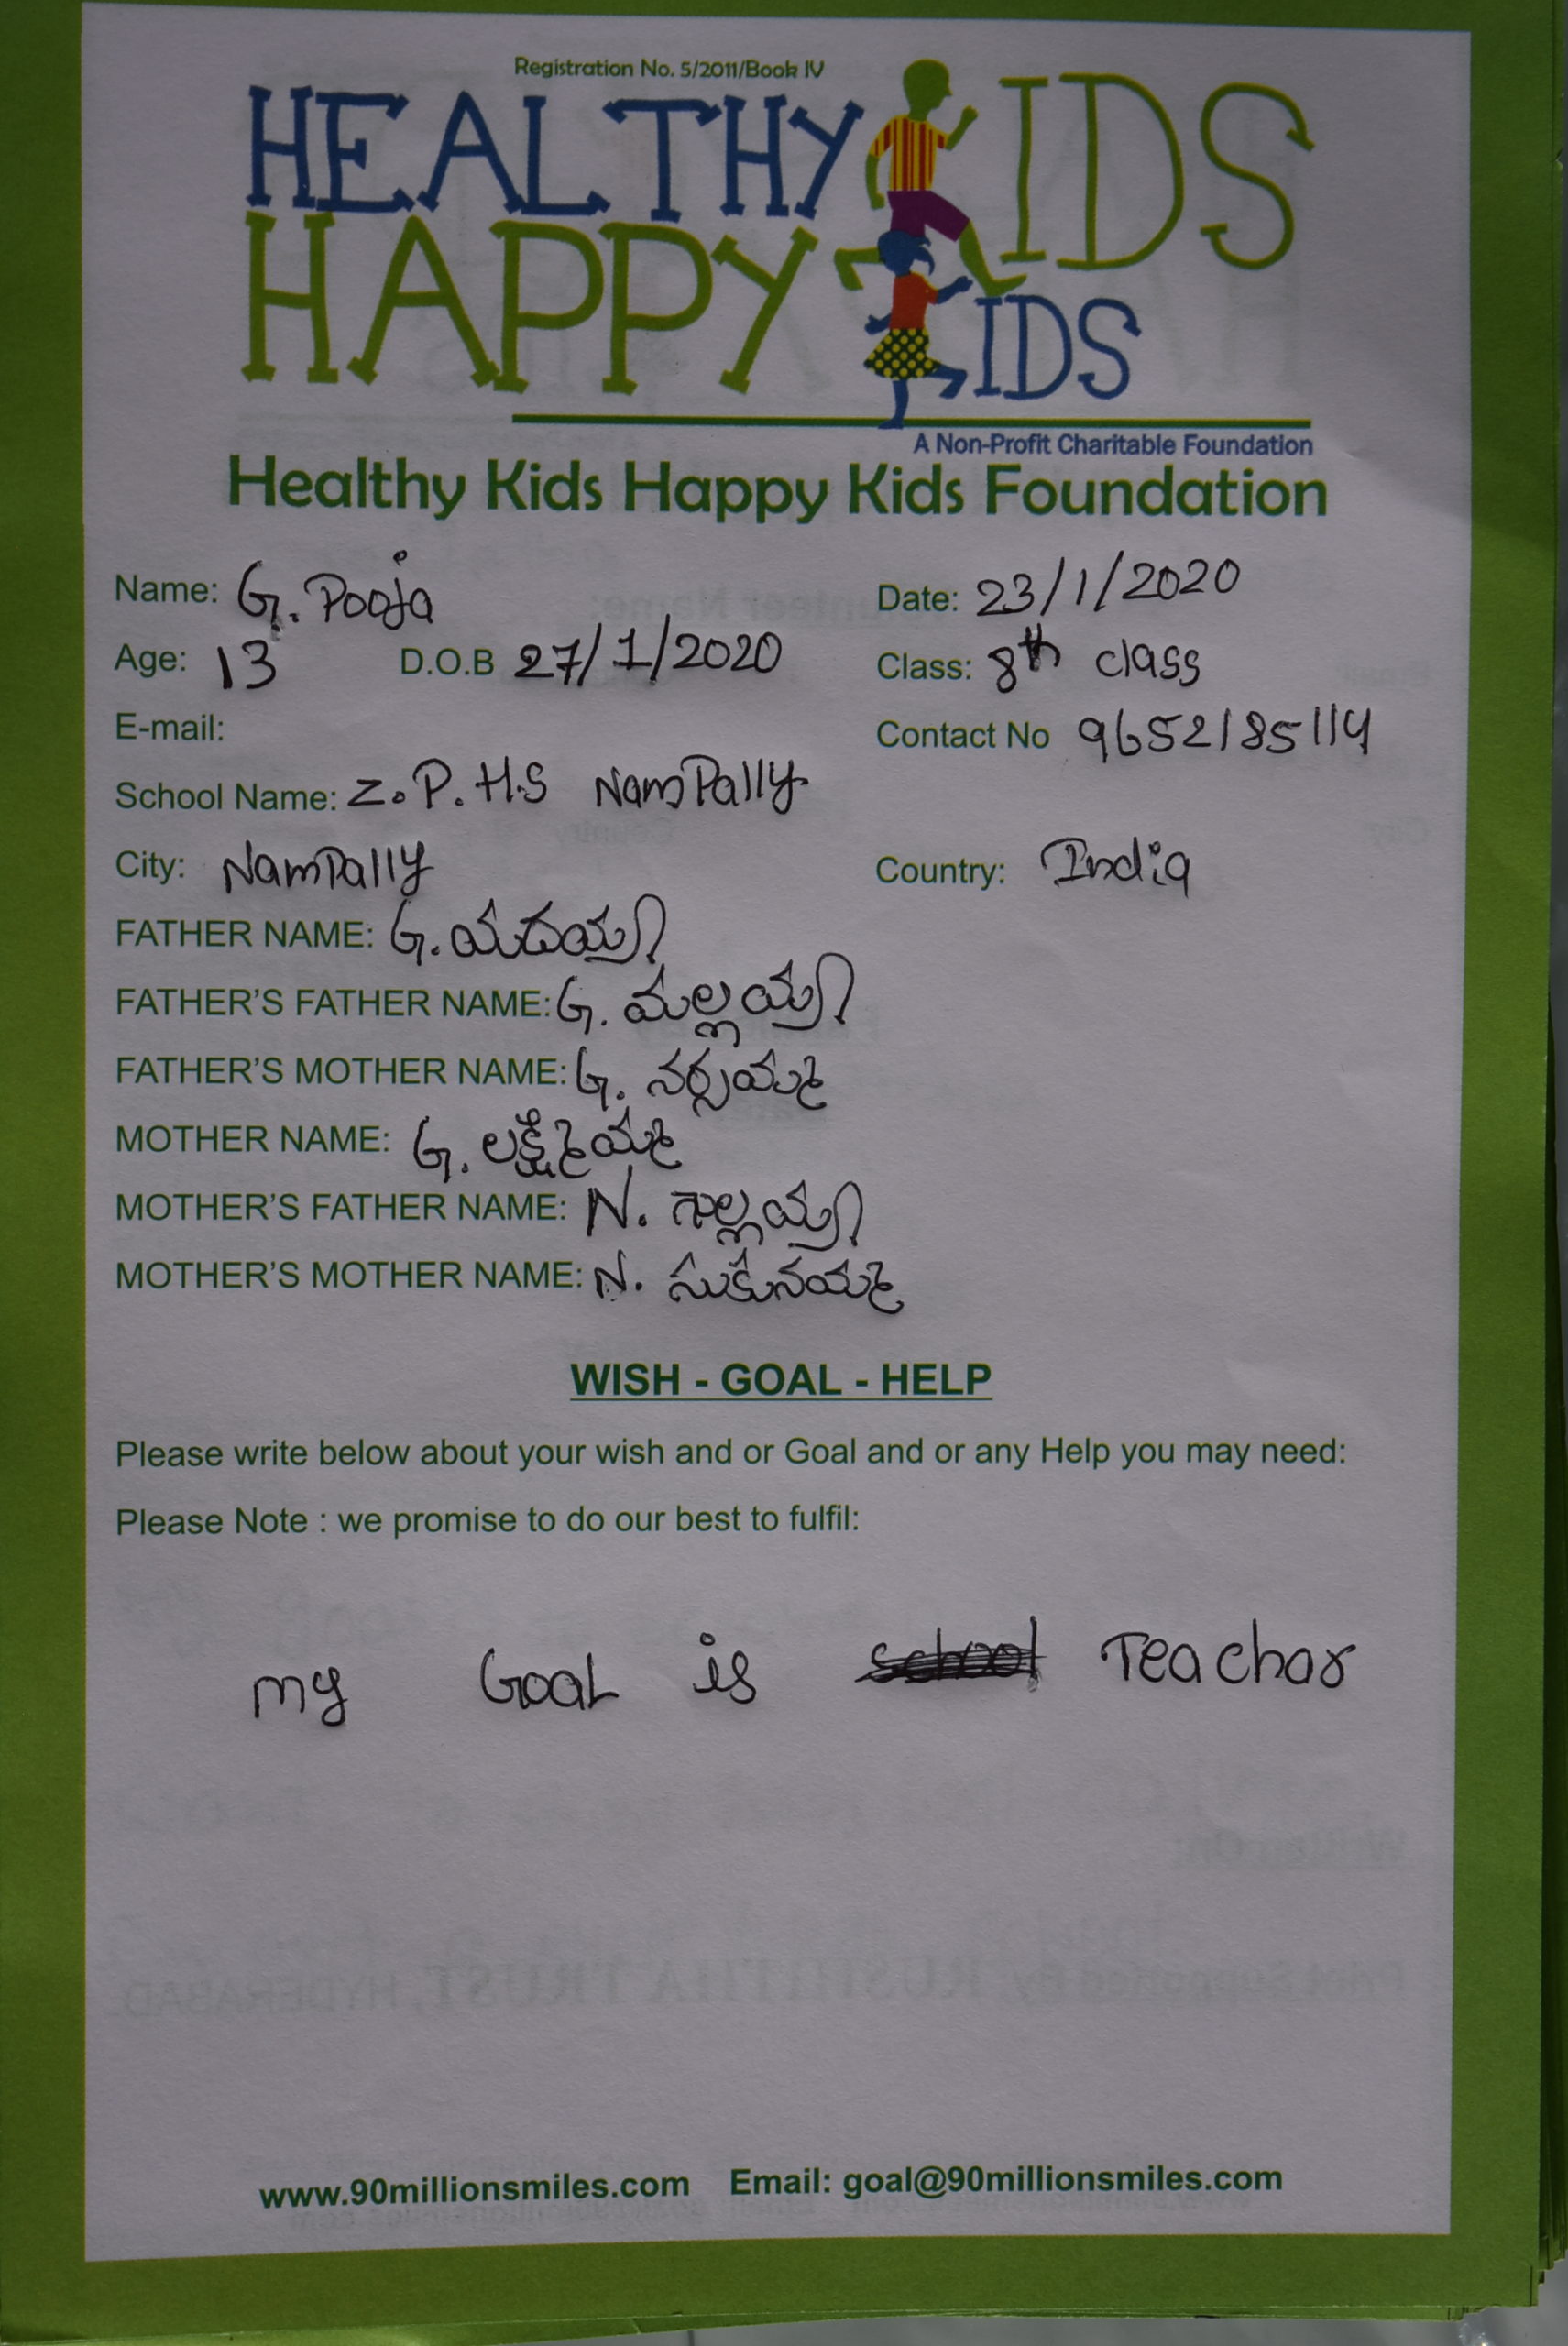 Registration No. 5/2011/Book IV
HEALTHY KIDS
HAPPY KIDS
A Non-Profit Charitable Foundation
Healthy Kids Happy Kids Foundation
Name: G. Pooja Date: 23/1/2020
Age: 13 D.O.B 27/1/2020 Class: 8th class
E-mail: Contact No 9652185114
School Name: Z.P.H.S NamPally
City: NamPally Country: India
FATHER NAME: G. యదయ్య
FATHER'S FATHER NAME: G. మల్లయ్య
FATHER'S MOTHER NAME: G. నర్సయమ్మ
MOTHER NAME: G.
MOTHER'S FATHER NAME: N. గాల్లయ్య
MOTHER'S MOTHER NAME: N. సుకునయమ్మ
WISH - GOAL - HELP
Please write below about your wish and or Goal and or any Help you may need:
Please Note : we promise to do our best to fulfil:
my GOAL is school Teachar
www.90millionsmiles.com Email: goal@90millionsmiles.com